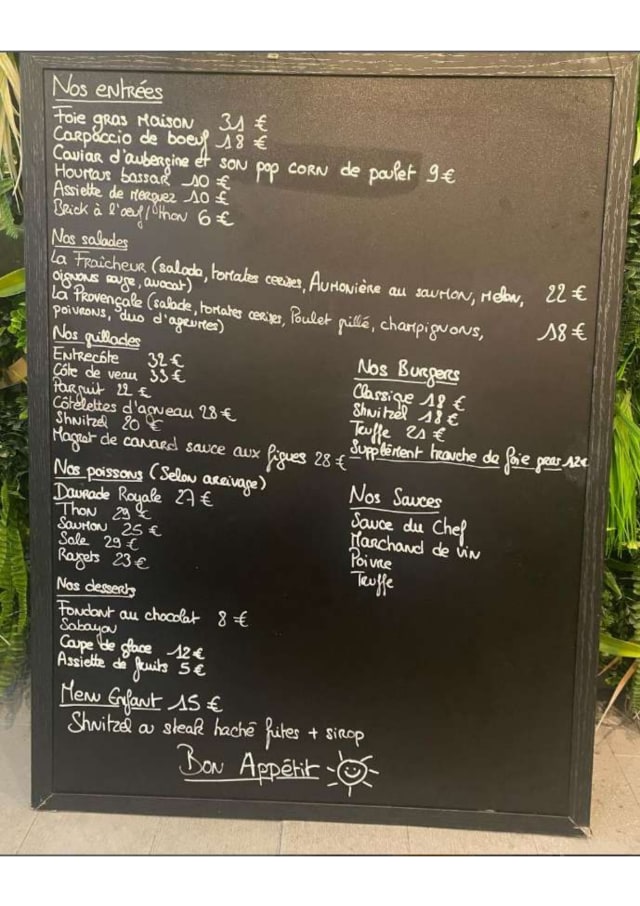 Nos entrées
Foie gras Maison 31 €
Carpaccio de boeuf 18 €
Caviar d'aubergine et son pop corn de poulet 9 €
Houmous bassar 10 €
Assiette de Merguez 10 €
Brick à l'oeuf / thon 6 €
Nos salades
La Fraîcheur (salade, tomates cerises, Aumonière au saumon, Melon, 22 €
oignons rouge, avocat)
La Provençale (salade, tomates cerises, Poulet grillé, champignons, 18 €
poivrons, duo d'agrumes)
Nos grillades
Entrecôte 32 €
Côte de veau 33 €
Pargruit 22 €
Côtelettes d'agneau 28 €
Shnitzel 20 €
Magret de canard sauce aux figues 28 €
Nos Burgers
Classique 18 €
Shnitzel 18 €
Truffe 21 €
Supplément tranche de foie gras 12€
Nos poissons (Selon arrivage)
Daurade Royale 27 €
Thon 29 €
Saumon 25 €
Sole 29 €
Rougets 23 €
Nos Sauces
Sauce du Chef
Marchand de vin
Poivre
Truffe
Nos desserts
Fondant au chocolat 8 €
Sabayon
Coupe de glace 12 €
Assiette de fruits 5 €
Menu Enfant 15 €
Shnitzel ou steak haché frites + sirop
Bon Appétit